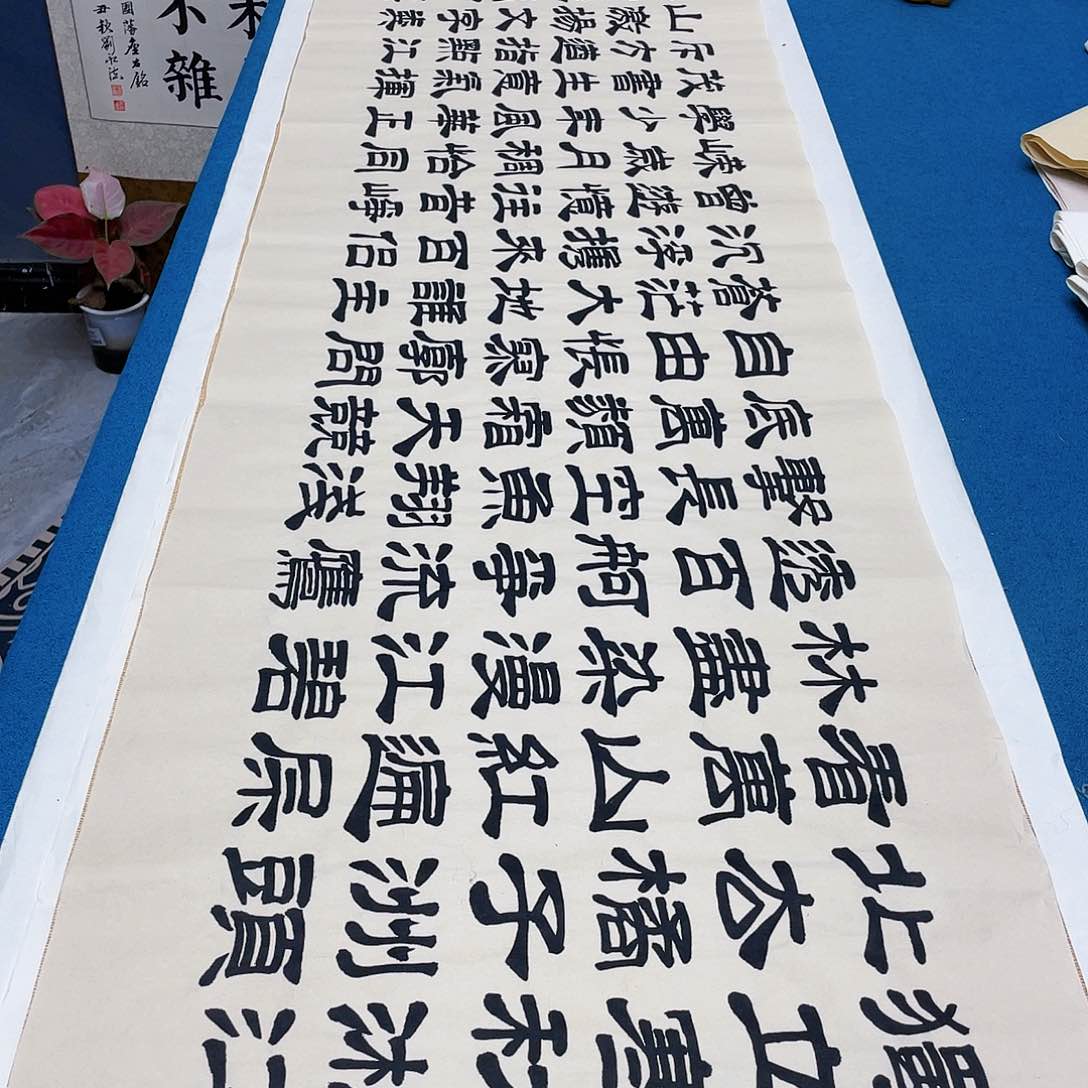 獨立寒秋湘江
北去橘子洲頭
看萬山紅遍层
林盡染漫江碧
透百舸爭流鷹
擊長空魚翔淺
底萬類霜天競
自由悵寥廓問
蒼茫大地誰主
沉浮攜來百侶
曾遊憶往昔崢
嶸歲月稠恰同
學少年風華正
茂書生意氣揮
斥方遒指點江
山激揚文字糞
不雜